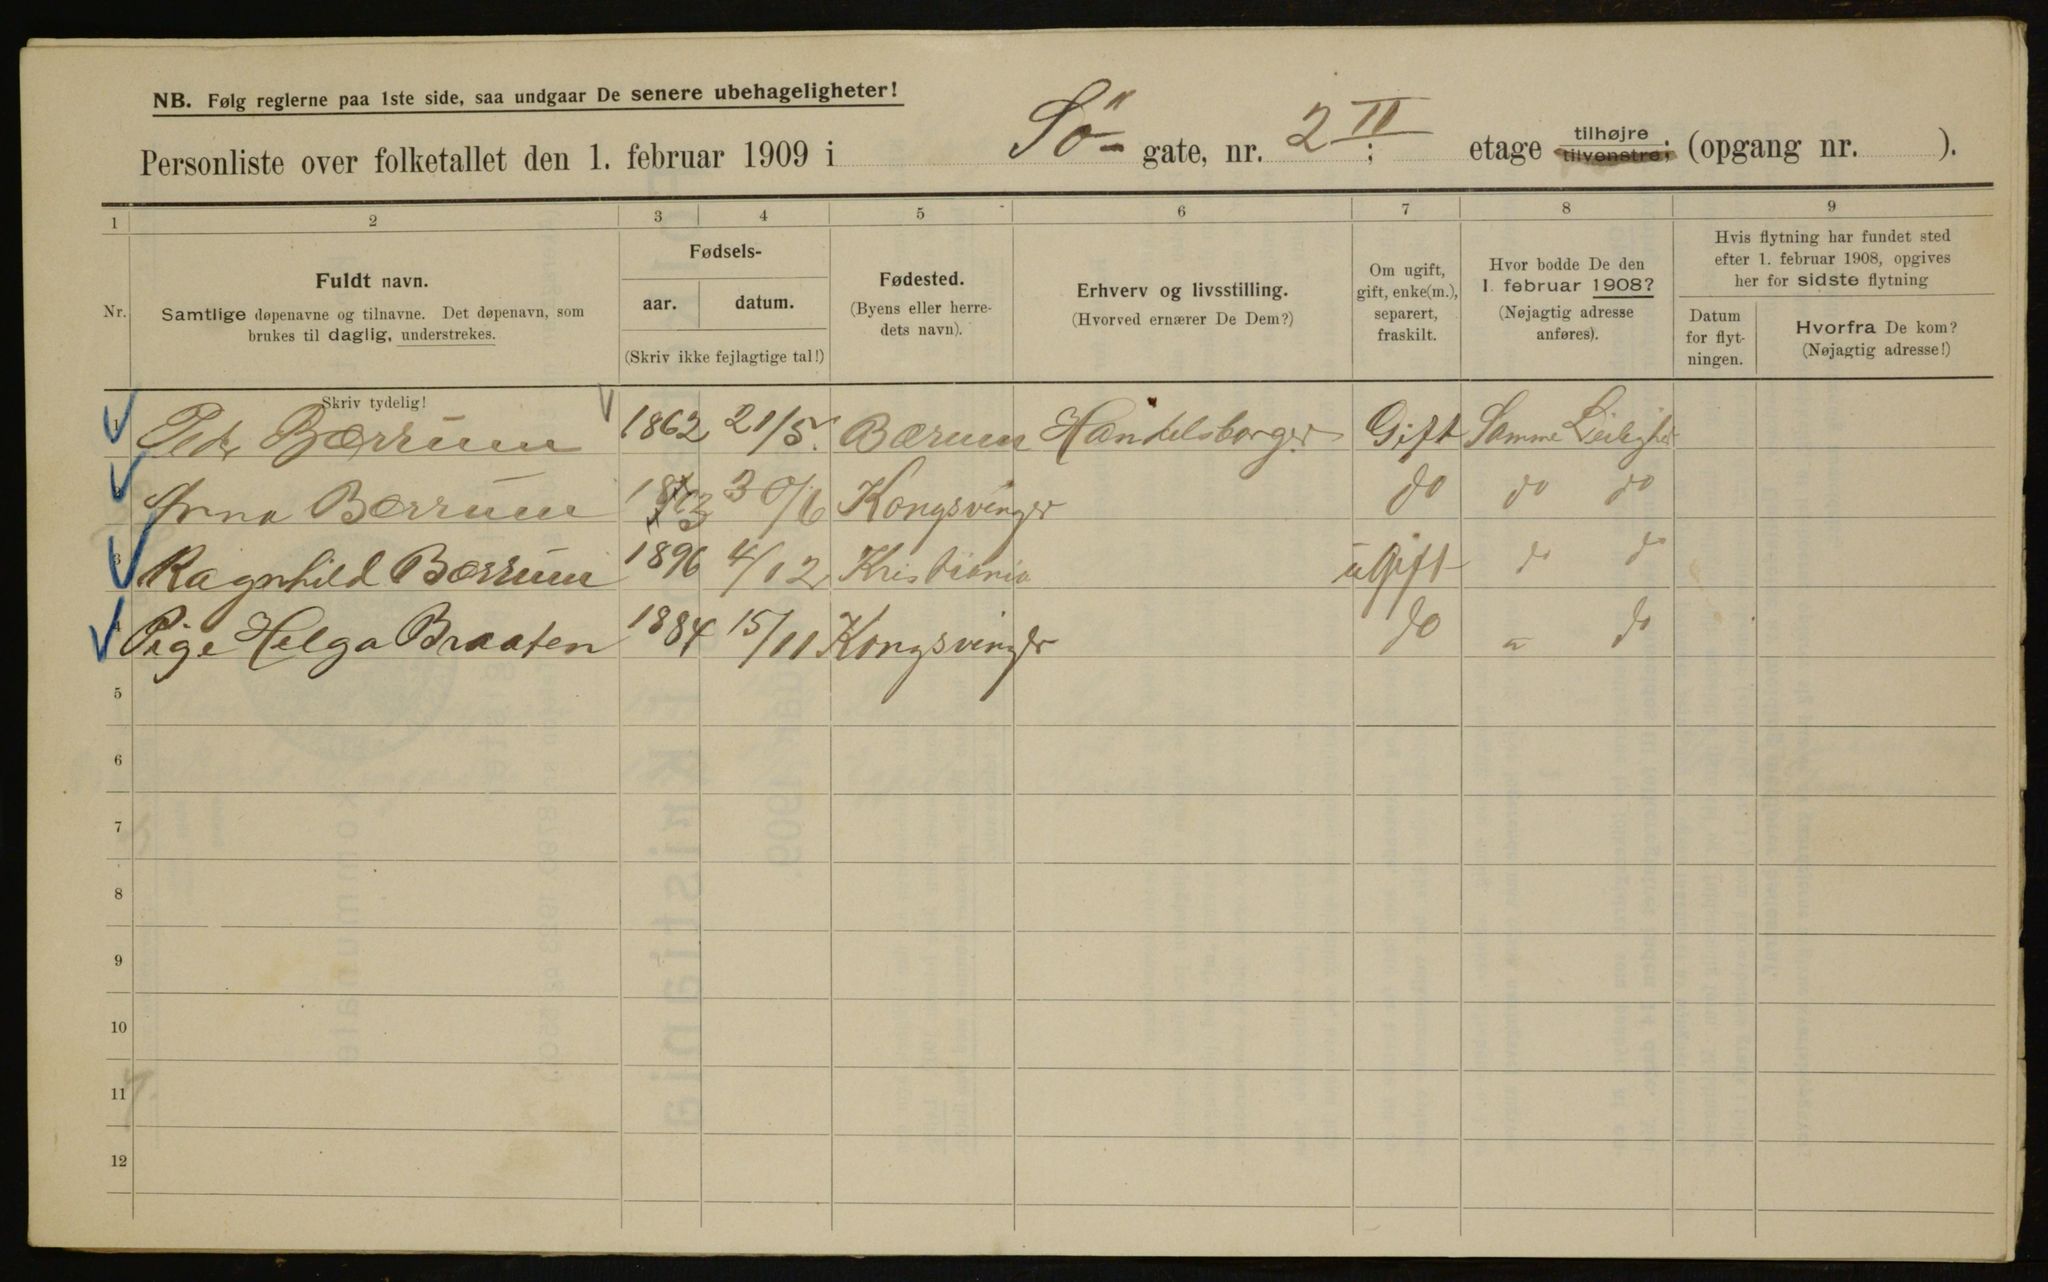 NB. Følg reglerne paa 1ste side, saa undgaar De senere ubehageligheter!
Personliste over folketallet den 1. februar 1909 i Sö- gate, nr. 2 II ; etage tilhøjre tilvenstre; (opgang nr. ).
1 2 3 4 5 6 7 8 9
Nr.
Fuldt navn.
Samtlige døpenavne og tilnavne. Det døpenavn, som
brukes til daglig, understrekes.
Skriv tydelig!
Fødsels-
aar. datum.
(Skriv ikke fejlagtige tal!)
Fødested.
(Byens eller herre-
dets navn).
Erhverv og livsstilling.
(Hvorved ernærer De Dem?)
Om ugift,
gift, enke(m.),
separert,
fraskilt.
Hvor bodde De den
1. februar 1908?
(Nøjagtig adresse
anføres).
Hvis flytning har fundet sted
efter 1. februar 1908, opgives
her for sidste flytning
Datum
for flyt-
ningen.
Hvorfra De kom?
(Nøjagtig adresse!)
1 Petr Bærrum 1862 21/5. Bærum Handelsborger Gift Samme Leilighet
2 Anna Bærrum 30/6 Kongsvinger do do do
3 Ragnhild Bærrum 1896 4/12 Kristiania ugift do do
4 Pige Helga Braaten 1884 15/11 Kongsvinger do " do
5
6
7
8
9
10
11
12